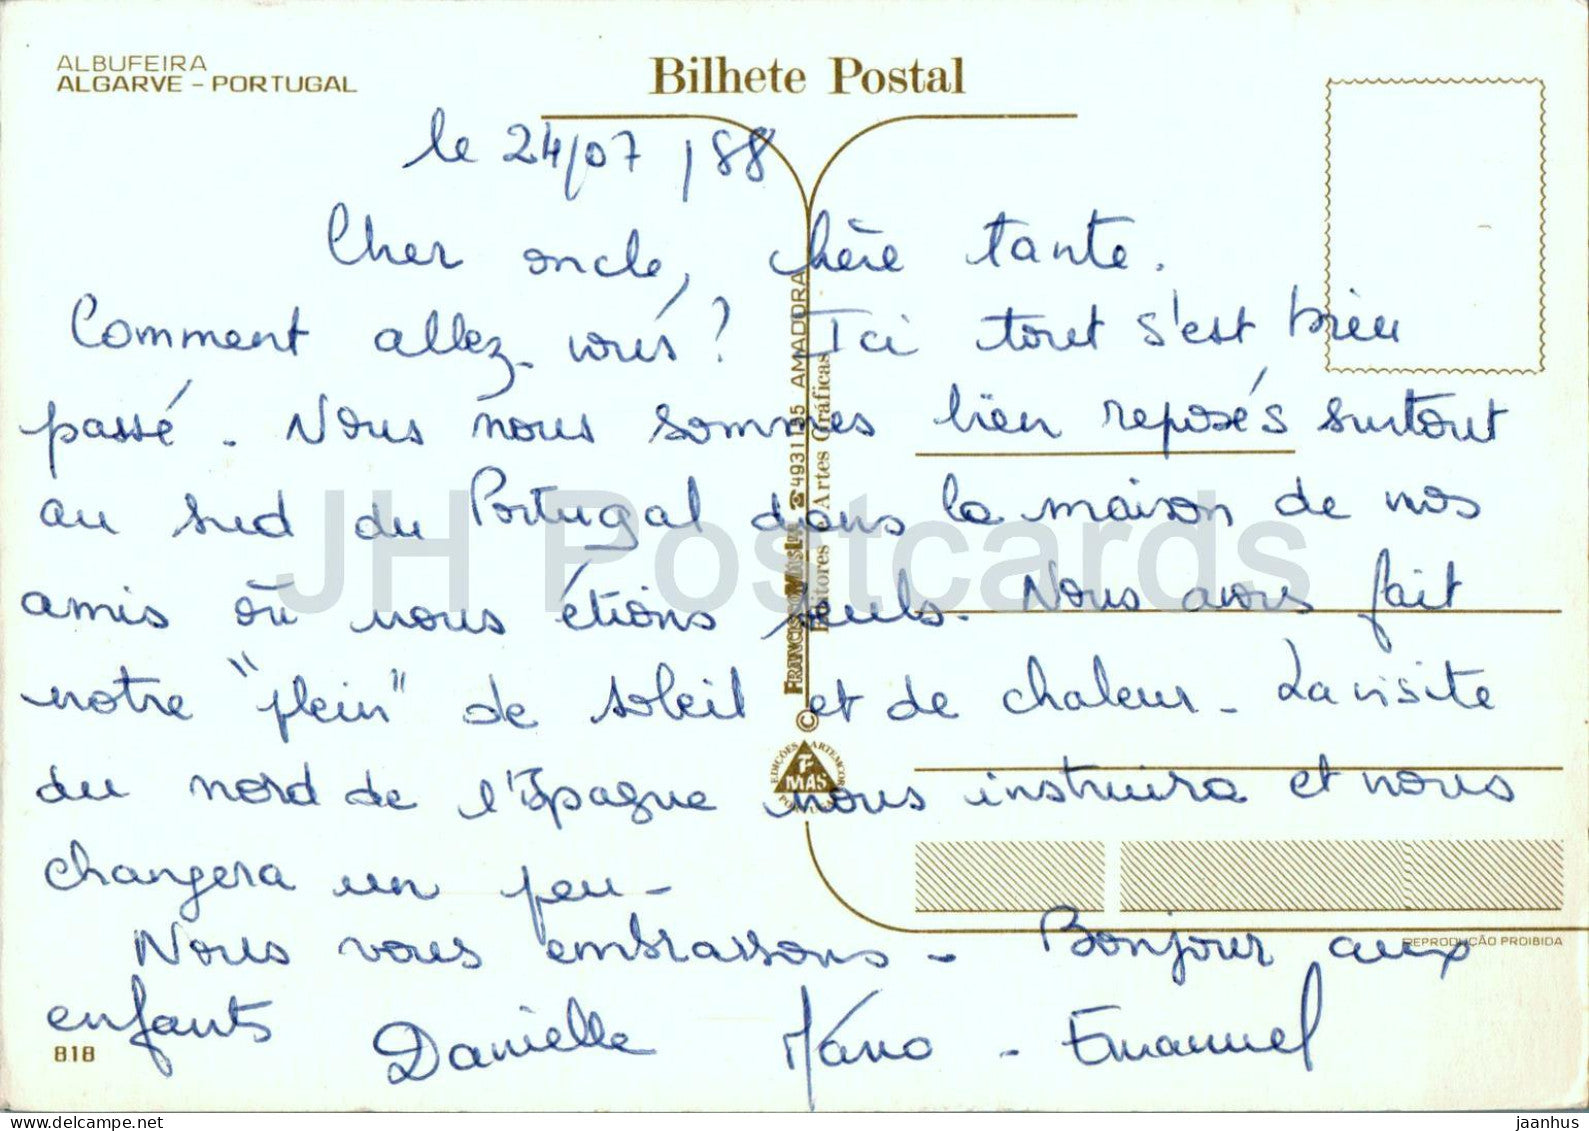 ALBUFEIRA
ALGARVE - PORTUGAL
Bilhete Postal
le 24/07/88
Cher oncle, chère tante.
Comment allez-vous? Ici tout s'est bien
passé. Nous nous sommes bien reposés surtout
au sud du Portugal dans la maison de nos
amis où nous étions seuls. Nous avons fait
notre "plein" de soleil et de chaleur. La visite
du nord de l'Espagne nous instruira et nous
changera un peu-
Nous vous embrassons - Bonjour aux
enfants Danielle - Emanuel
818
REPRODUÇÃO PROIBIDA
© FRANCISCO MÁS Lda ☎4931135 AMADORA
Editores e Artes Gráficas
EDIÇÕES ARTEMCOR
F MAS
PORTUGAL
JH Postcards
www.delcampe.net
jaanhus